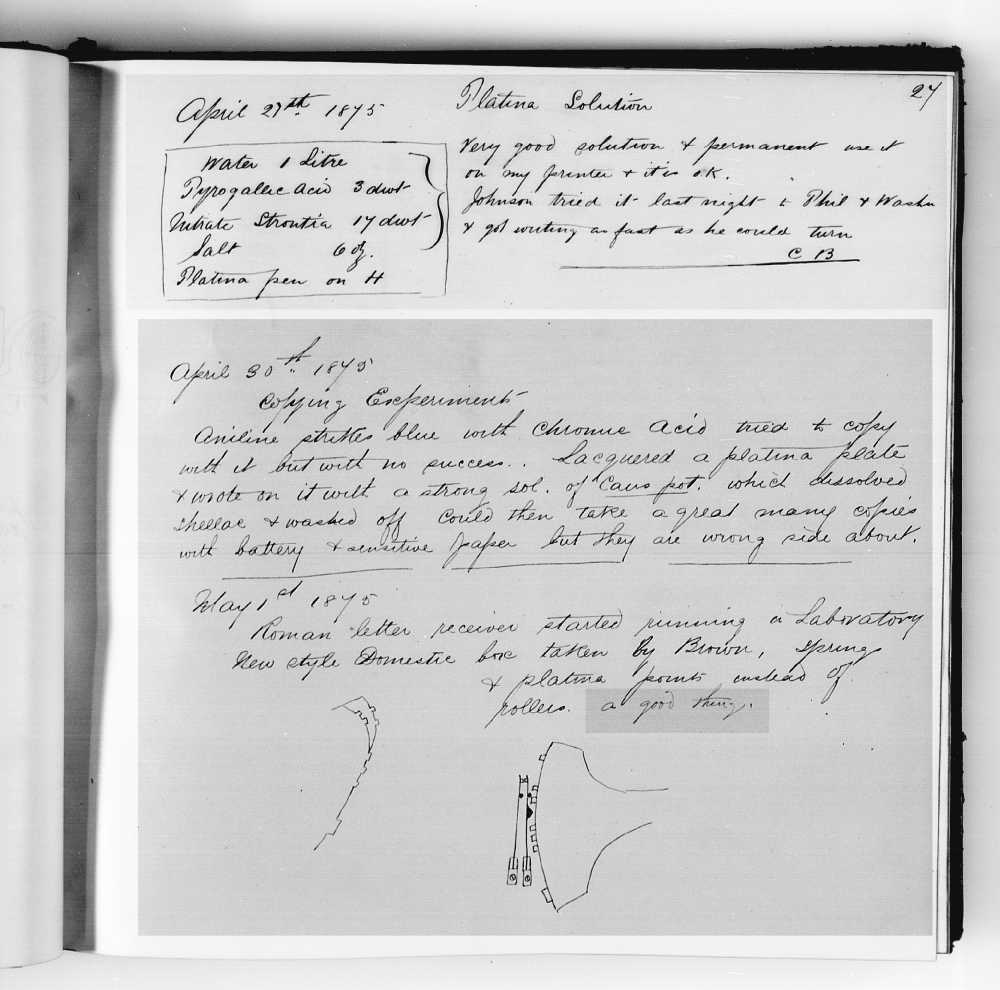 27
April 27th 1875
Water 1 Litre
Pyrogallic Acid 3 dwt
Nitrate Strontia 17 dwt
Salt 6 oz.
Platina pen on H
Platina Solution
Very good solution & permanent use it
on my printer & it is O.K.
Johnson tried it last night to Phil & Washn
& got writing as fast as he could turn
C B
April 30th 1875
Copying Experiments
Aniline strikes blue with Chromic Acid tried to copy
with it but with no success.. Lacquered a platina plate
& wrote on it with a strong sol. of Caus pot. which dissolved
shellac & washed off Could then take a great many copies
with battery & sensitive paper but they are wrong side about.
May 1st 1875
Roman letter receiver started running in Laboratory
New style Domestic box taken by Brown, Spring
& platina points instead of
rollers. a good thing.